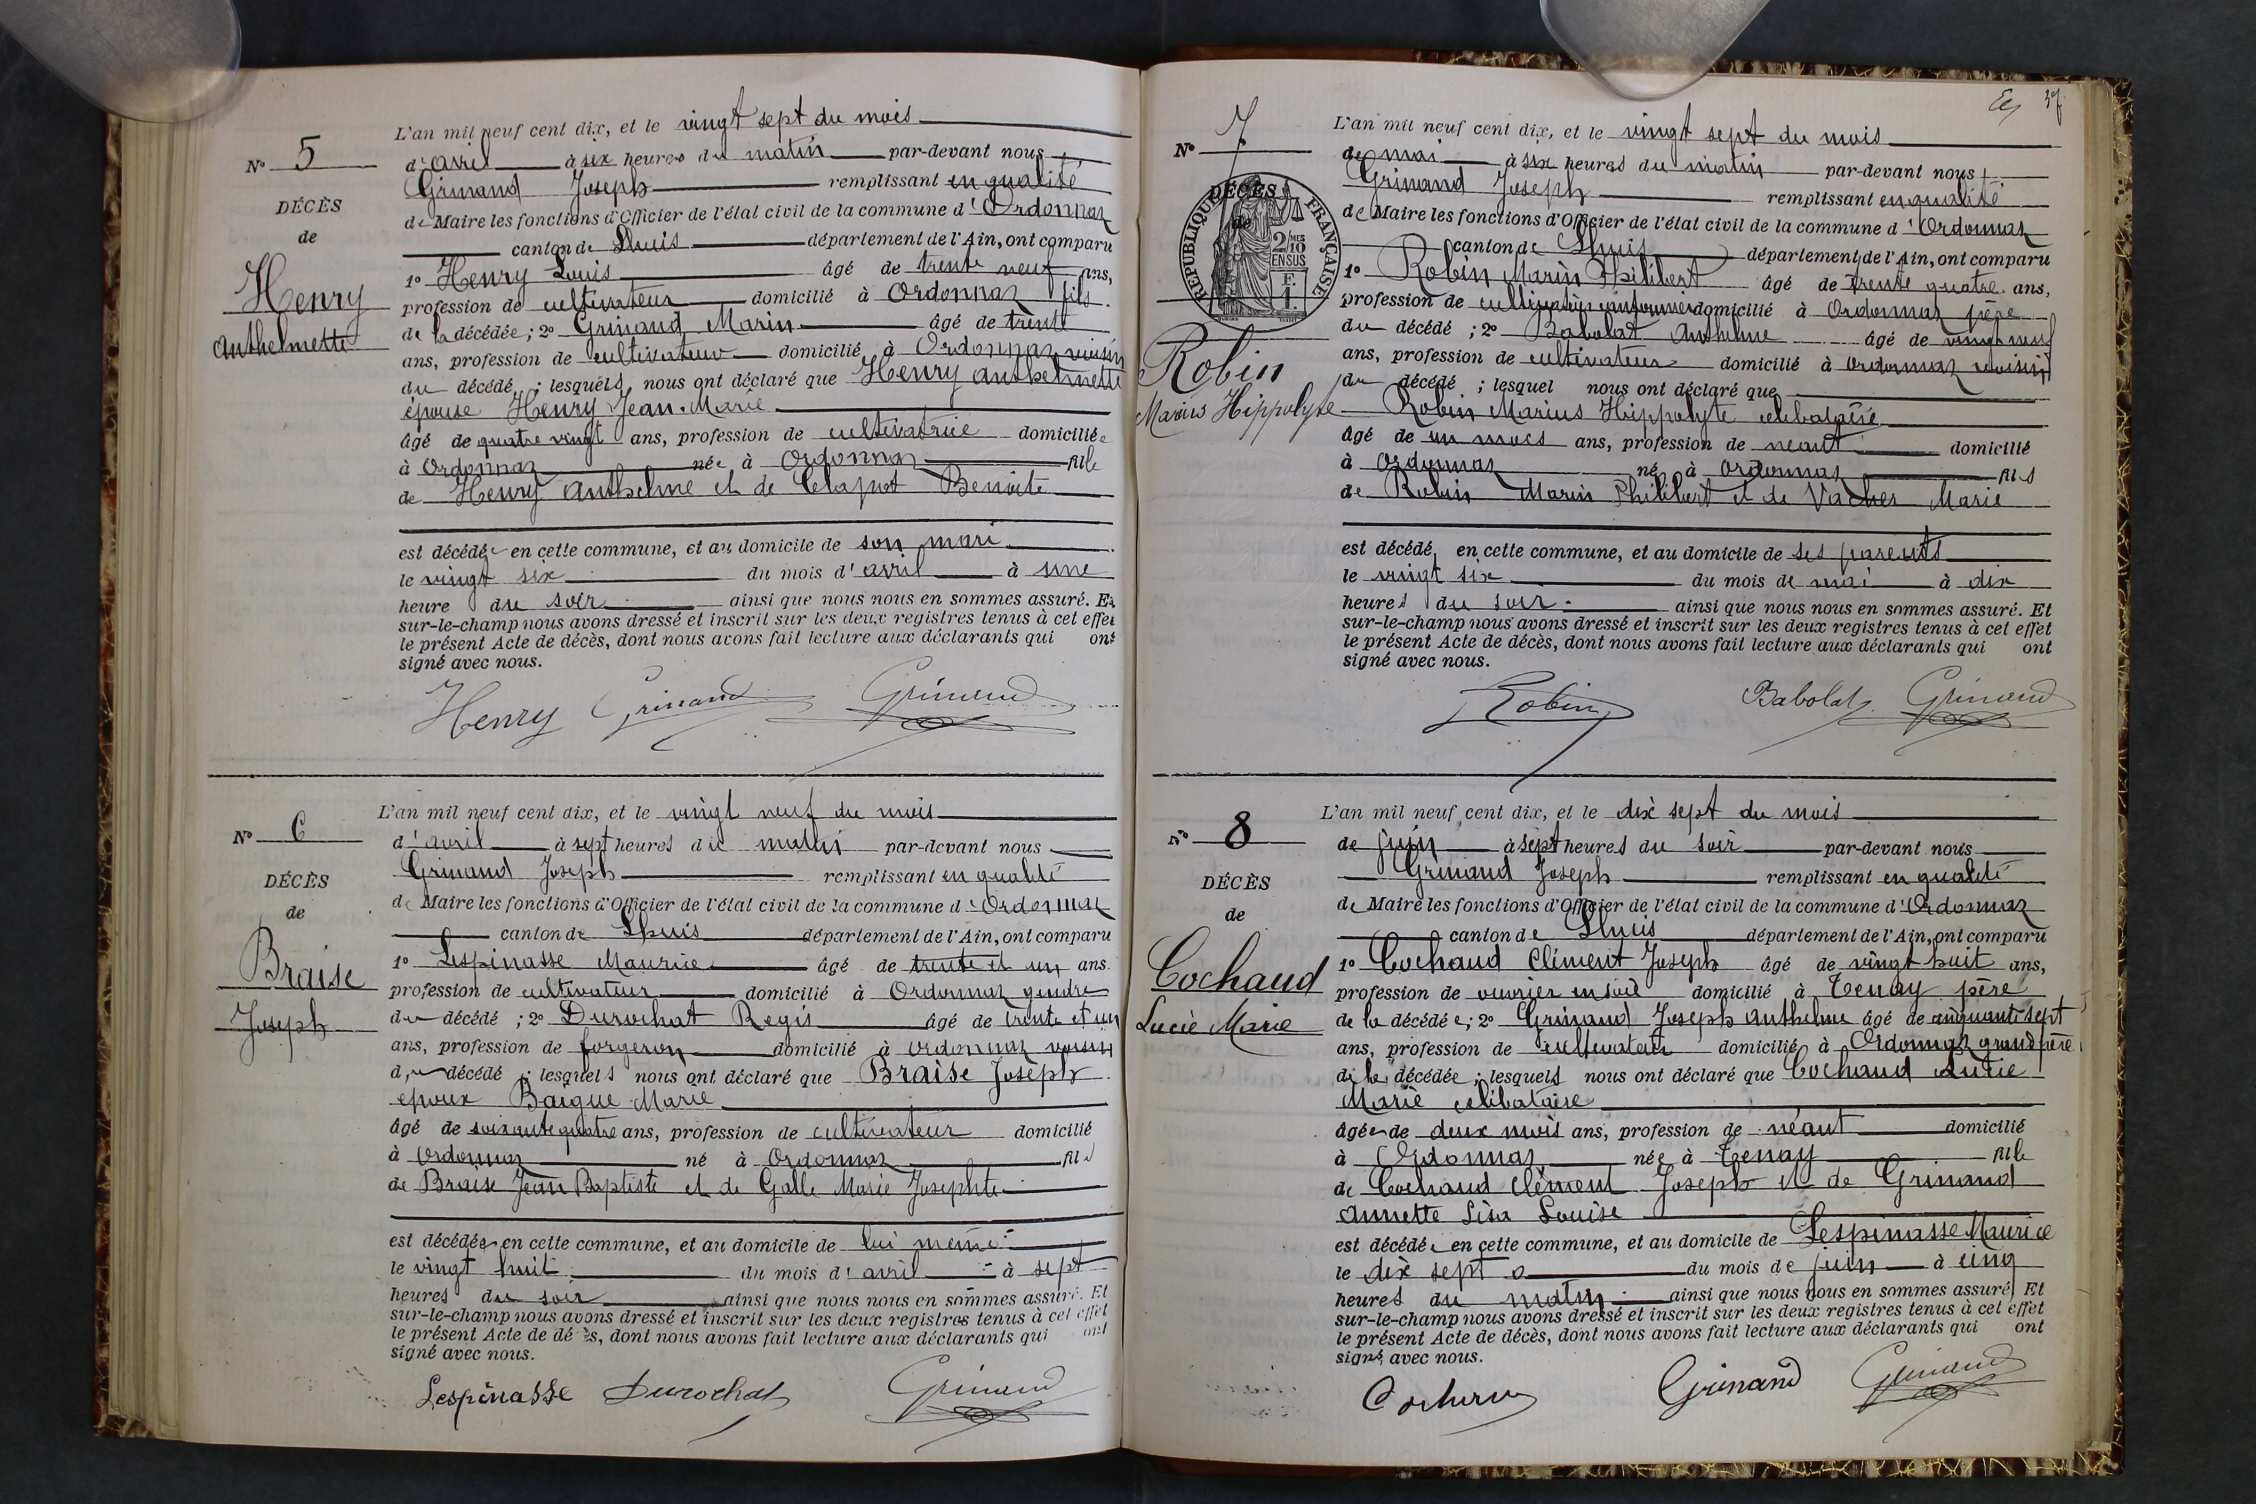 L'an mil neuf cent dix, et le vingt sept du mois
N° 5
d'avril à six heures du matin par-devant nous
Grinand Joseph remplissant en qualité
DÉCÈS
de Maire les fonctions d'Officier de l'état civil de la commune d'Ordonnaz
de
canton de Lhuis département de l'Ain, ont comparu
Henry
Anthelmette
1° Henry Louis âgé de trente neuf ans,
profession de cultivateur domicilié à Ordonnaz fils
de la décédée ; 2° Grinand Marin âgé de trente
ans, profession de cultivateur domicilié à Ordonnaz voisin
du décédé ; lesquels nous ont déclaré que Henry Anthelmette
épouse Henry Jean-Marie
âgé de quatre vingt ans, profession de cultivatrice domiciliée
à Ordonnaz née à Ordonnaz fille
de Henry Anthelme et de Benoite
est décédée en cette commune, et au domicile de son mari
le vingt six du mois d'avril à une
heure du soir ainsi que nous nous en sommes assuré. Et
sur-le-champ nous avons dressé et inscrit sur les deux registres tenus à cet effet
le présent Acte de décès, dont nous avons fait lecture aux déclarants qui ont
signé avec nous.
Henry Grinand Grinand
L'an mil neuf cent dix, et le vingt neuf du mois
N° 6
d'avril à sept heures du matin par-devant nous
Grinand Joseph remplissant en qualité
DÉCÈS
de Maire les fonctions d'Officier de l'état civil de la commune d'Ordonnaz
de
canton de Lhuis département de l'Ain, ont comparu
Braise
Joseph
1° Lespinasse Maurice âgé de trente et un ans
profession de cultivateur domicilié à Ordonnaz gendre
du décédé ; 2° Durochat Regis âgé de trente et un
ans, profession de forgeron domicilié à Ordonnaz voisin
du décédé ; lesquels nous ont déclaré que Braise Joseph
époux Barque Marie
âgé de soixante quatre ans, profession de cultivateur domicilié
à Ordonnaz né à Ordonnaz fils
de Braise Jean Baptiste et de Galle Marie Josephte
est décédée en cette commune, et au domicile de lui même
le vingt huit du mois d'avril à sept
heures du soir ainsi que nous nous en sommes assuré. Et
sur-le-champ nous avons dressé et inscrit sur les deux registres tenus à cet effet
le présent Acte de décès, dont nous avons fait lecture aux déclarants qui ont
signé avec nous.
Lespinasse Durochat Grinand
37
L'an mil neuf cent dix, et le vingt sept du mois
N° 7
de mai à six heures du matin par-devant nous
Grinand Joseph remplissant en qualité
DÉCÈS
RÉPUBLIQUE FRANÇAISE
2/10MES
EN SUS
F.
1.
de Maire les fonctions d'Officier de l'état civil de la commune d'Ordonnaz
de
canton de Lhuis département de l'Ain, ont comparu
Robin
Marius Hippolyte
1° Robin Marin Philibert âgé de trente quatre ans,
profession de cultivateur cantonnier domicilié à Ordonnaz père
du décédé ; 2° Babolat Anthelme âgé de vingt neuf
ans, profession de cultivateur domicilié à Ordonnaz voisin
du décédé ; lesquel nous ont déclaré que
Robin Marius Hippolyte célibataire
âgé de un mois ans, profession de néant domicilié
à Ordonnaz né à Ordonnaz fils
de Robin Marin Philibert et de Vacher Marie
est décédé en cette commune, et au domicile de ses parents
le vingt six du mois de mai à dix
heures du soir ainsi que nous nous en sommes assuré. Et
sur-le-champ nous avons dressé et inscrit sur les deux registres tenus à cet effet
le présent Acte de décès, dont nous avons fait lecture aux déclarants qui ont
signé avec nous.
Robin Babolat Grinand
L'an mil neuf cent dix, et le dix sept du mois
N° 8
de juin à sept heures du soir par-devant nous
Grinand Joseph remplissant en qualité
DÉCÈS
de Maire les fonctions d'Officier de l'état civil de la commune d'Ordonnaz
de
canton de Lhuis département de l'Ain, ont comparu
Cochaud
Lucie Marie
1° Cochaud Clément Joseph âgé de vingt huit ans,
profession de ouvrier en soie domicilié à Tenay père
de la décédée ; 2° Grinand Joseph Anthelme âgé de cinquante sept
ans, profession de cultivateur domicilié à Ordonnaz grand père
de la décédée ; lesquels nous ont déclaré que Cochaud Lucie
Marie célibataire
âgée de deux mois ans, profession de néant domicilié
à Ordonnaz née à Tenay fille
de Cochaud Clément Joseph et de Grinand
Annette Lisa Louise
est décédée en cette commune, et au domicile de Lespinasse Maurice
le dix sept du mois de juin à cinq
heures du matin ainsi que nous nous en sommes assuré. Et
sur-le-champ nous avons dressé et inscrit sur les deux registres tenus à cet effet
le présent Acte de décès, dont nous avons fait lecture aux déclarants qui ont
signé avec nous.
Grinand Grinand